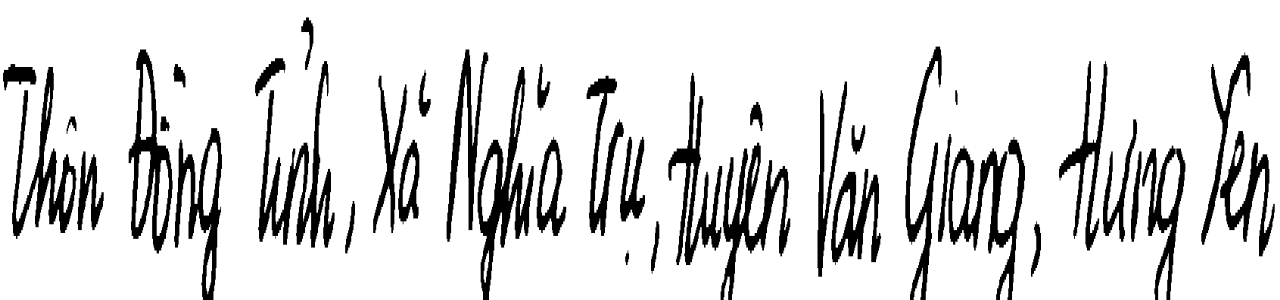 Thôn Đồng Tỉnh, Xã Nghĩa Trụ, Huyện Văn Giang, Hưng Yên